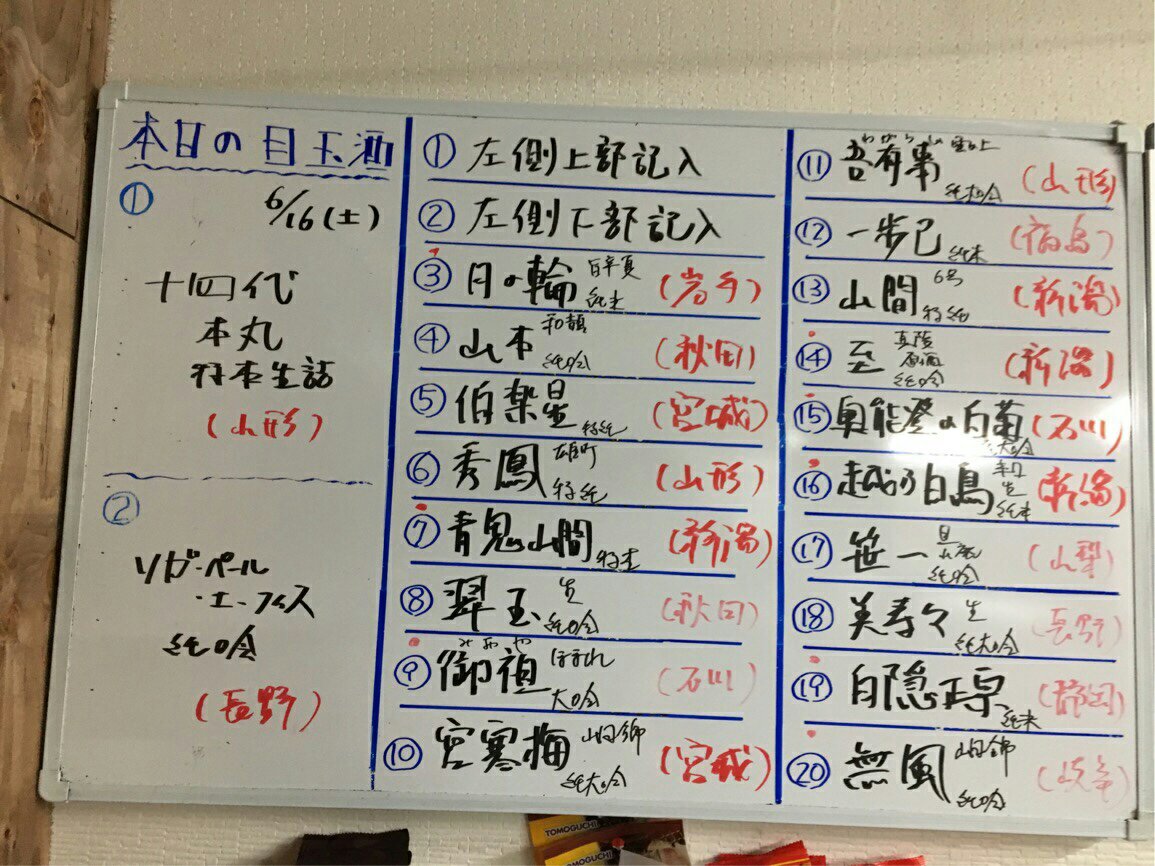 本日の目玉酒
① 6/16(土)
十四代
本丸
特本生詰
(山形)
②
ソガ・ペール
・エ・フィス
純吟
(長野)
① 左側上部記入
② 左側下部記入
③ 月の輪 純米 (岩手)
④ 山本 和韻 純吟 (秋田)
⑤ 伯楽星 特純 (宮城)
⑥ 秀鳳 雄町 特純 (山形)
⑦ 青鬼山間 特本 (新潟)
⑧ 翠玉 生 純吟 (秋田)
⑨ 御祖 みおや ほまれ 大吟 (石川)
⑩ 宮寒梅 山田錦 純大吟 (宮城)
⑪ 吾有事 わがうじ 雲の上 純吟 (山形)
⑫ 一歩己 純米 (福島)
⑬ 山間 6号 特純 (新潟)
⑭ 至 真陵 原酒 純吟 (新潟)
⑮ 奥能登の白菊 純大吟 (石川)
⑯ 越の白鳥 生 純米 (新潟)
⑰ 笹一 純吟 (山梨)
⑱ 美寿々 生 純大吟 (長野)
⑲ 白隠正宗 純米 (静岡)
⑳ 無風 山田錦 純吟 (岐阜)
TOMOGUCHI
TOMOGUCHI